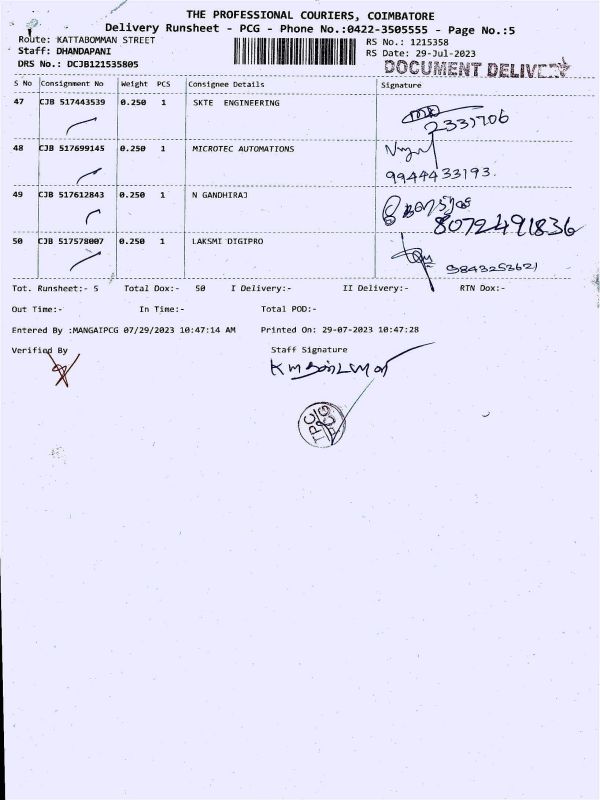 THE PROFESSIONAL COURIERS, COIMBATORE
Delivery Runsheet - PCG - Phone No.:0422-3505555 - Page No.:5
Route: KATTABOMMAN STREET
RS No.: 1215358
Staff: DHANDAPANI
RS Date: 29-Jul-2023
DRS No.: DCJB121535805
DOCUMENT DELIVERY
S No Consignment No Weight PCS Consignee Details Signature
47 CJB 517443539 0.250 1 SKTE ENGINEERING
2331706
48 CJB 517699145 0.250 1 MICROTEC AUTOMATIONS
9944433193.
49 CJB 517612843 0.250 1 N GANDHIRAJ
8072491836
50 CJB 517578007 0.250 1 LAKSMI DIGIPRO
9843253621
Tot. Runsheet:- 5 Total Dox:- 50 I Delivery:- II Delivery:- RTN Dox:-
Out Time:- In Time:- Total POD:-
Entered By :MANGAIPCG 07/29/2023 10:47:14 AM Printed On: 29-07-2023 10:47:28
Verified By Staff Signature
TPC
PCG